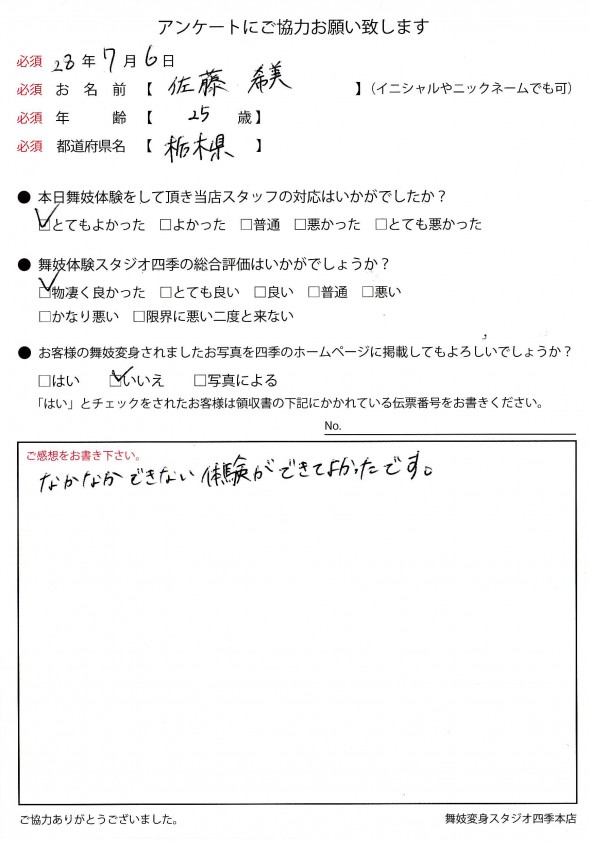 アンケートにご協力お願い致します
必須 28年7月6日
必須 お名前【 佐藤 希美 】（イニシャルやニックネームでも可）
必須 年齢【 25 歳】
必須 都道府県名【 栃木県 】
● 本日舞妓体験をして頂き当店スタッフの対応はいかがでしたか？
☑とてもよかった □よかった □普通 □悪かった □とても悪かった
● 舞妓体験スタジオ四季の総合評価はいかがでしょうか？
☑物凄く良かった □とても良い □良い □普通 □悪い
□かなり悪い □限界に悪い二度と来ない
● お客様の舞妓変身されましたお写真を四季のホームページに掲載してもよろしいでしょうか？
□はい ☑いいえ □写真による
「はい」とチェックをされたお客様は領収書の下記にかかれている伝票番号をお書きください。
No.
ご感想をお書き下さい。
なかなかできない体験ができてよかったです。
ご協力ありがとうございました。
舞妓変身スタジオ四季本店